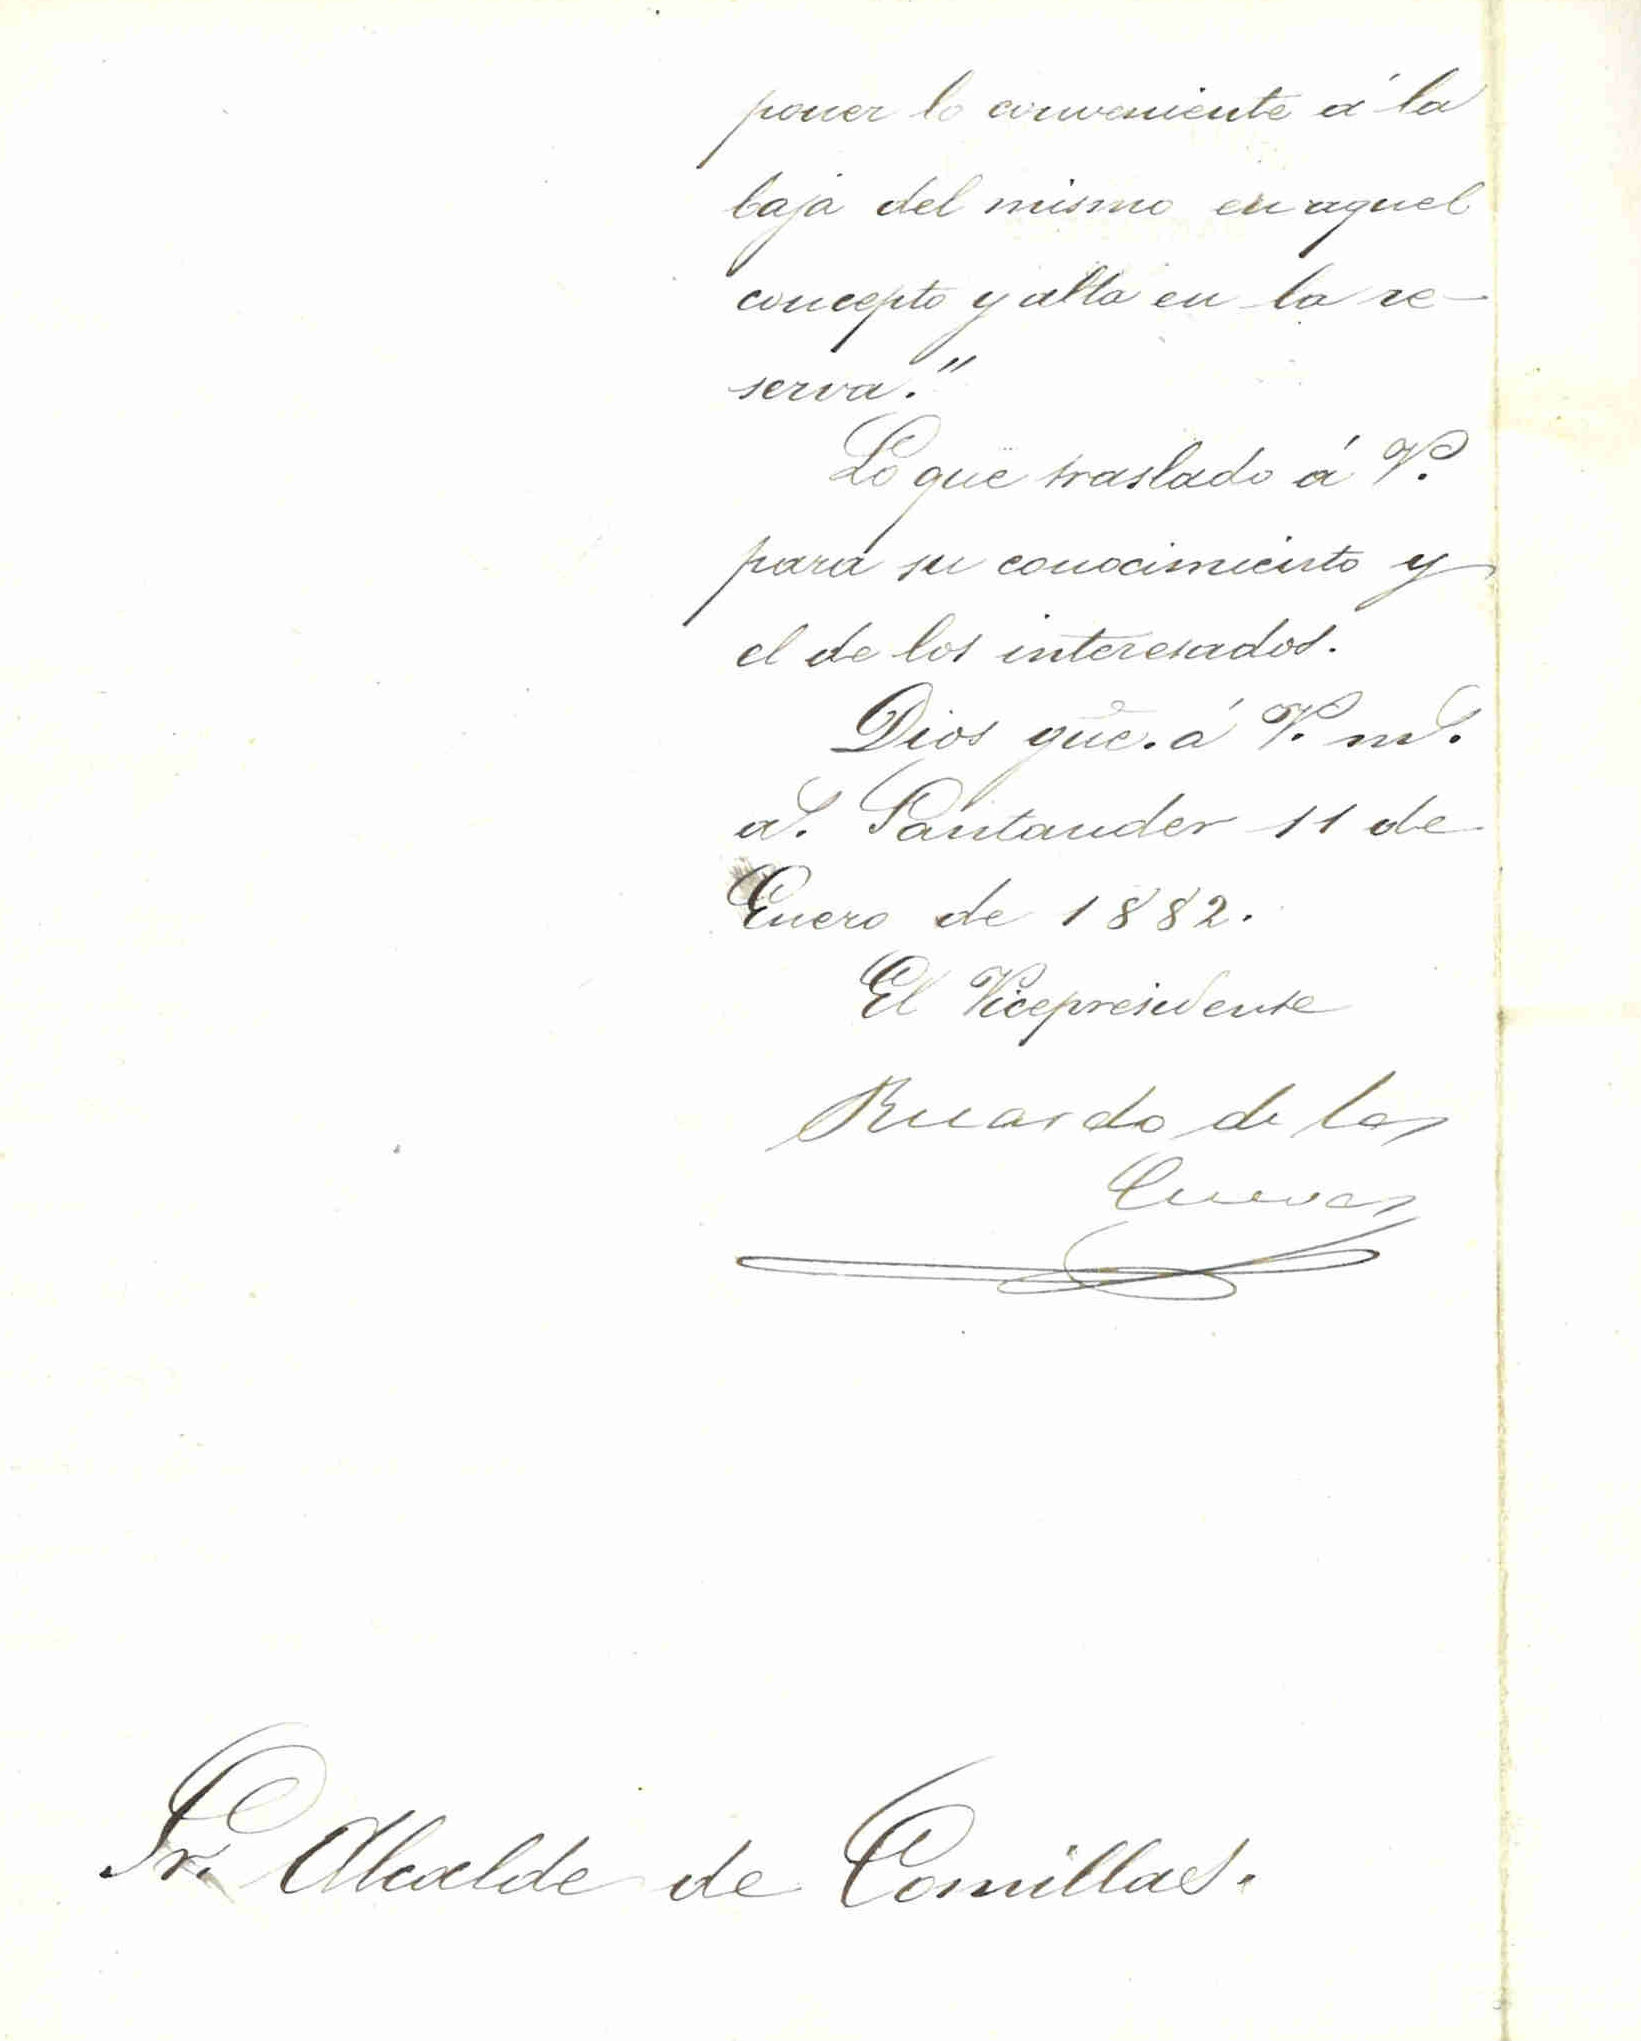 poner lo conveniente á la
baja del mismo en aquel
concepto y alta en la re-
serva."
Lo que traslado á V.
para su conocimiento y
el de los interesados.
Dios gũe. á V. ms.
as. Santander 11 de
Enero de 1882.
El Vicepresidente
Ricardo de las
Cuevas
Sr. Alcalde de Comillas.